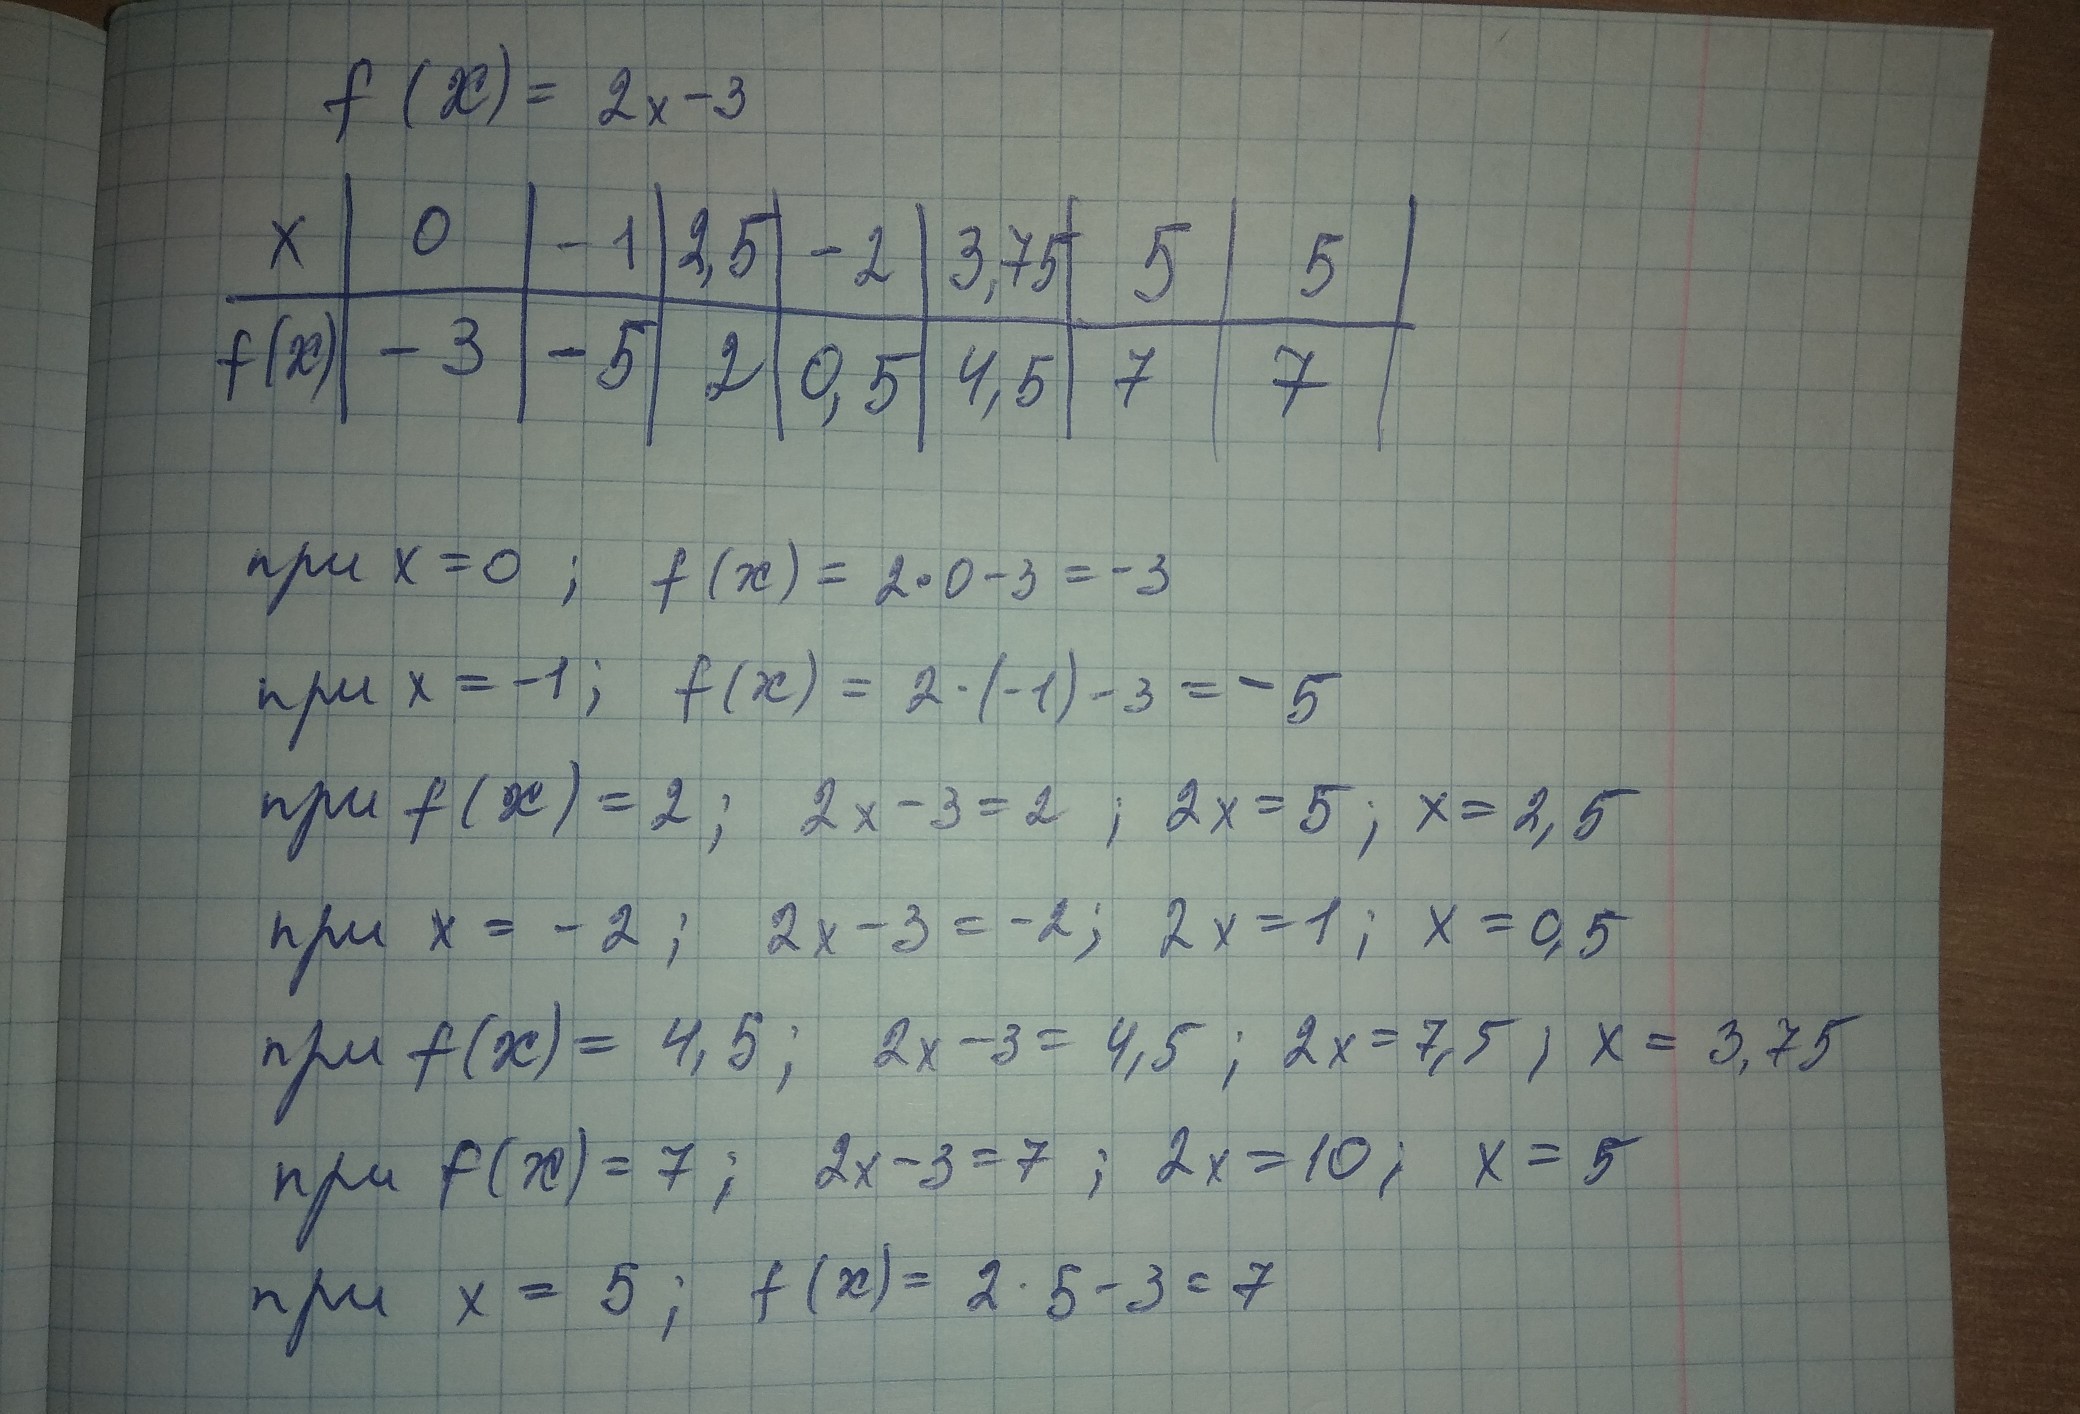 f(x) = 2x-3
x | 0 | -1 | 2,5 | -2 | 3,75 | 5 | 5 |
f(x) | -3 | -5 | 2 | 0,5 | 4,5 | 7 | 7 |
при x=0 ; f(x) = 2·0-3 =-3
при x = -1; f(x) = 2·(-1)-3 =-5
при f(x) = 2; 2x-3=2 ; 2x=5; x=2,5
при x = -2; 2x-3=-2; 2x=1; x=0,5
при f(x)= 4,5; 2x-3= 4,5; 2x=7,5; x= 3,75
при f(x)=7; 2x-3=7 ; 2x=10; x=5
при x = 5; f(x)= 2·5-3=7